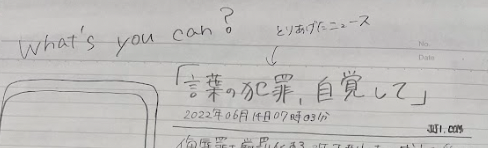 What's you can?
とりあげたニュース
No.
Date
「言葉の犯罪、自覚して」
2022年06月14日07時03分
JIJI.COM
侮辱罪を厳罰化する